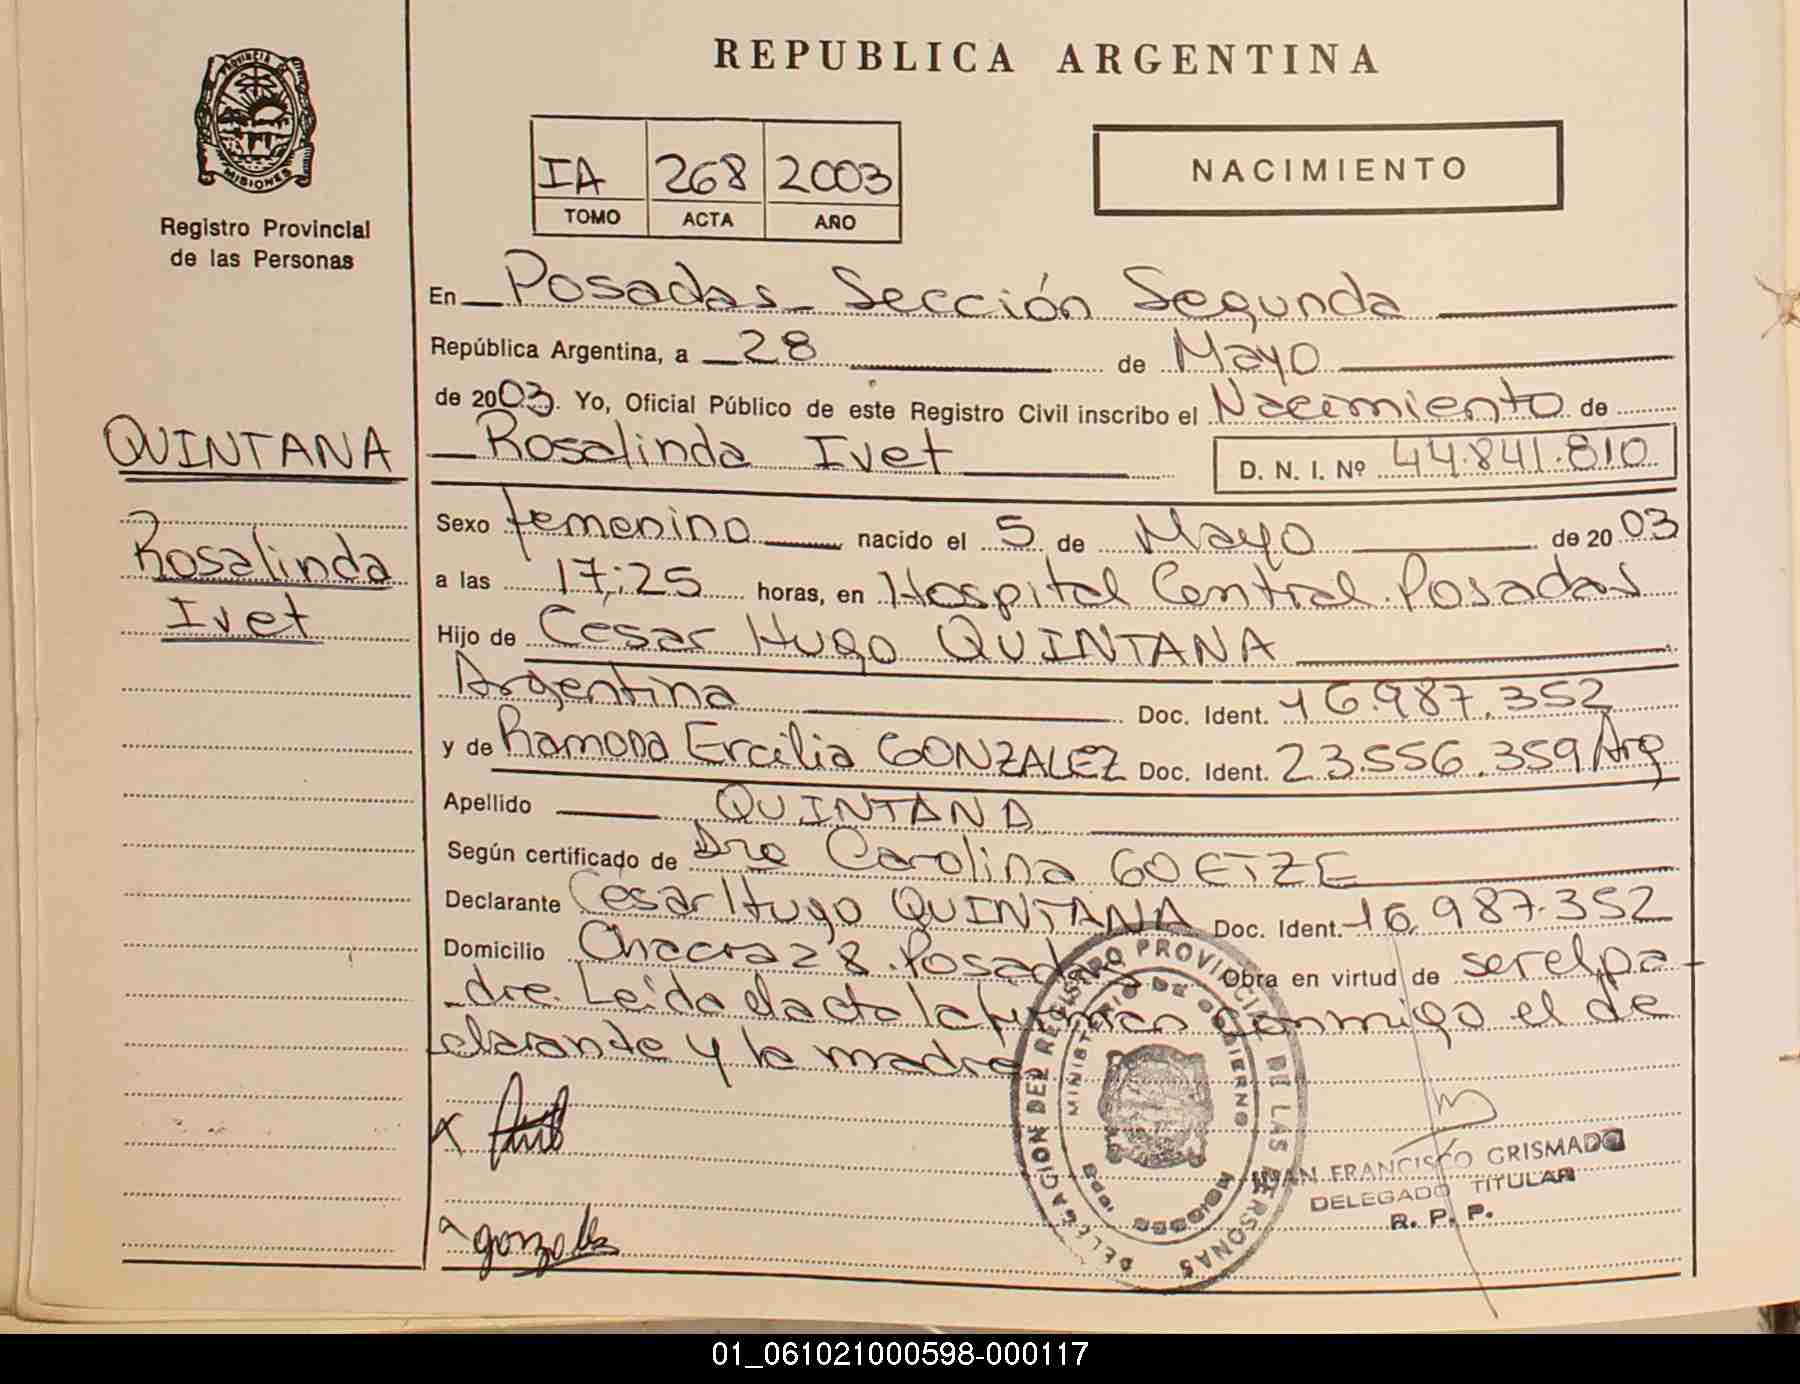 REPUBLICA ARGENTINA
PROVINCIA DE
MISIONES
Registro Provincial
de las Personas
IA 268 2003
TOMO ACTA AÑO
NACIMIENTO
QUINTANA
Rosalinda
Ivet
En Posadas Sección Segunda
República Argentina, a 28 de Mayo
de 2003. Yo, Oficial Público de este Registro Civil inscribo el Nacimiento de
Rosalinda Ivet D. N. I. Nº 44.841.810
Sexo femenino nacido el 5 de Mayo de 2003
a las 17:25 horas, en Hospital Central Posadas
Hijo de Cesar Hugo QUINTANA
Argentina Doc. Ident. 16.987.352
y de Ramona Ercilia GONZALEZ Doc. Ident. 23.556.359 Arg
Apellido QUINTANA
Según certificado de Dra Carolina GOETZE
Declarante Cesar Hugo QUINTANA Doc. Ident. 16.987.352
Domicilio Chacra 28. Posadas Obra en virtud de ser el pa-
dre. Leida el acta la firman conmigo el de
clarante y la madre
DELEGACION DEL REGISTRO PROVINCIAL DE LAS PERSONAS
MINISTERIO DE GOBIERNO
JUAN FRANCISCO GRISMADO
DELEGADO TITULAR
R. P. P.
gonzalez
01_061021000598-000117